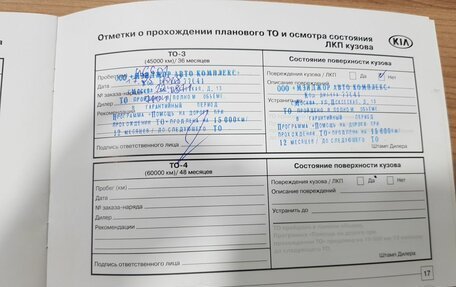 Отметки о прохождении планового ТО и осмотра состояния
ЛКП кузова
KIA
ТО-3
(45000 км)/ 36 месяцев
Пробег
Дата
№ заказа
Дилер
Рекомендации
ООО «МЭЙДЖОР АВТО КОМПЛЕКС»
ТО ПРОЙДЕНО В ПОЛНОМ ОБЪЕМЕ
В ГАРАНТИЙНЫЙ ПЕРИОД
ПРОГРАММА «ПОМОЩЬ НА ДОРОГЕ» ПРИ
ПРОХОЖДЕНИИ ТО ПРОДЛЕНА НА 15 000 КМ
12 МЕСЯЦЕВ / ДО СЛЕДУЮЩЕГО ТО
Подпись ответственного лица
Состояние поверхности кузова
Повреждения кузова / ЛКП Да Нет
Описание повреждений
Устранить
ООО «МЭЙДЖОР АВТО КОМПЛЕКС»
ТО ПРОЙДЕНО В ПОЛНОМ ОБЪЕМЕ
В ГАРАНТИЙНЫЙ ПЕРИОД
ПРОГРАММА «ПОМОЩЬ НА ДОРОГЕ» ПРИ
ПРОХОЖДЕНИИ ТО ПРОДЛЕНА НА 15 000 КМ
12 МЕСЯЦЕВ / ДО СЛЕДУЮЩЕГО ТО
Штамп Дилера
ТО-4
(60000 км)/ 48 месяцев
Пробег (км)
Дата
№ заказа-наряда
Дилер
Рекомендации
Подпись ответственного лица
Состояние поверхности кузова
Повреждения кузова / ЛКП Да Нет
Описание повреждений
Устранить до
Штамп Дилера
17